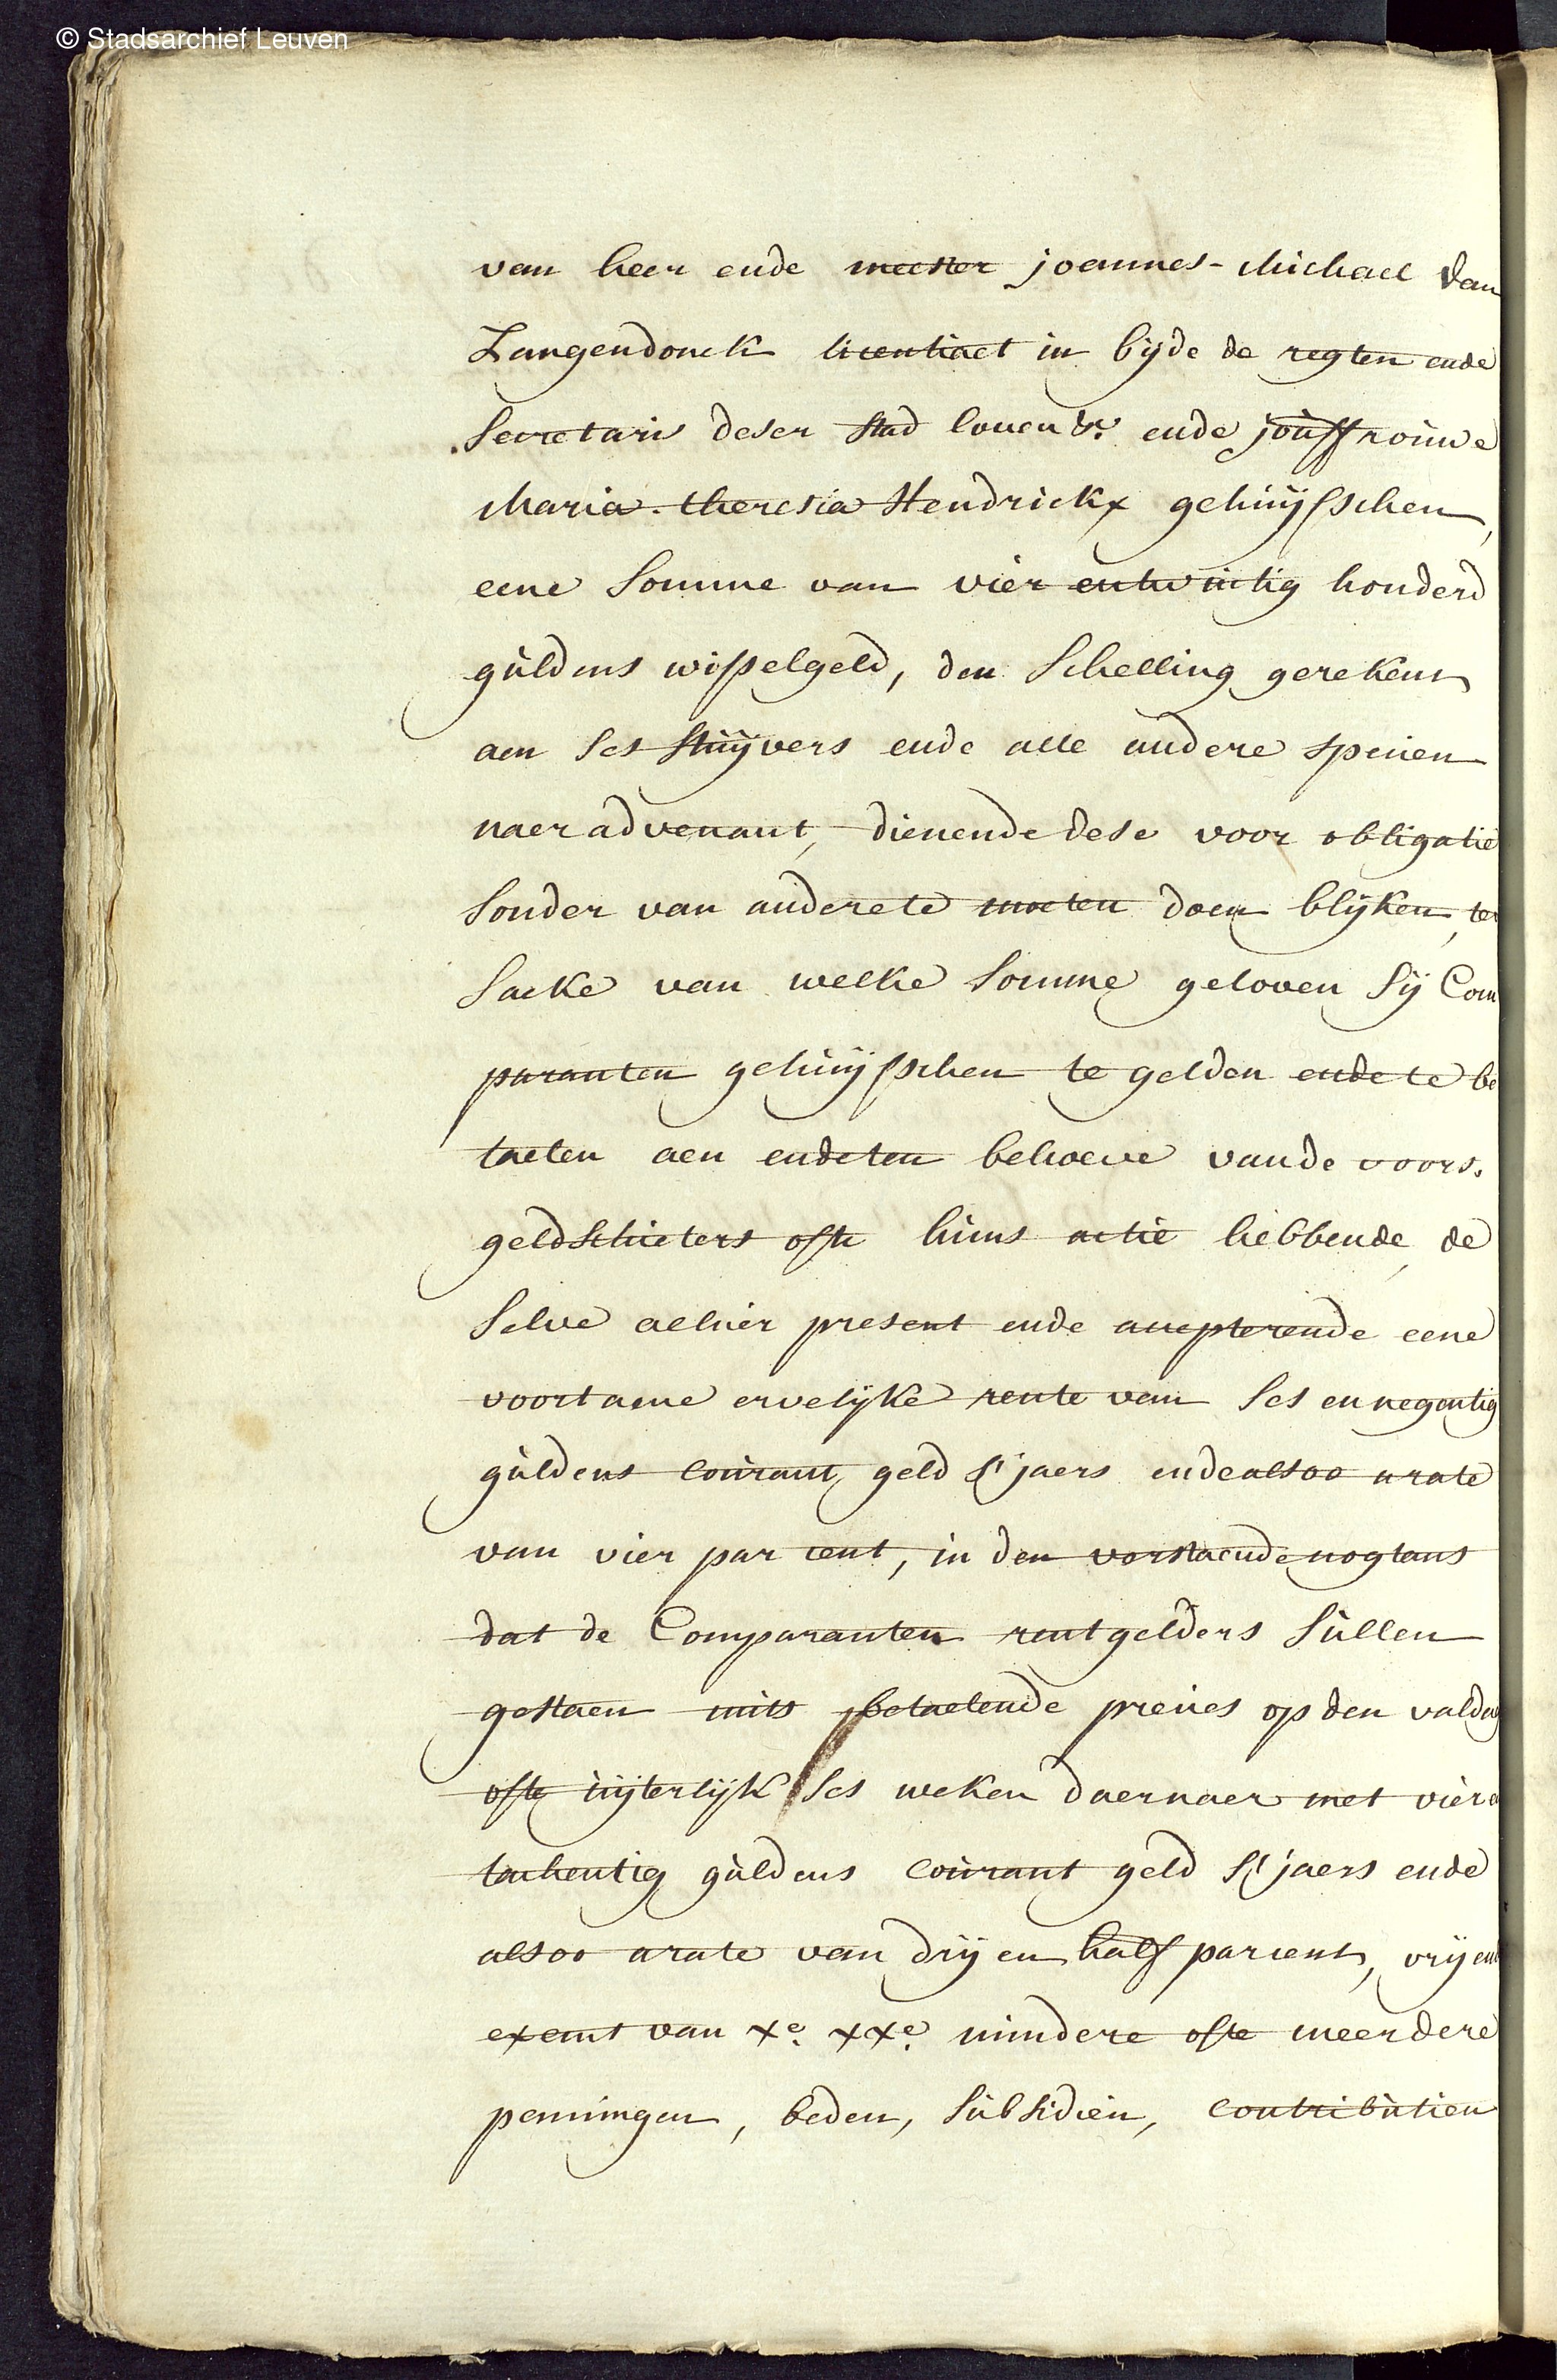 © Stadsarchief Leuven
van heer ende meester joannes-Michael Van
Langendonck licentiaet in bijde de regten ende
Secretaris deser stad loven &r. ende jouffrouwe
Maria-theresia Hendrickx gehuijsschen,
eene somme van vier entwintig honderd
guldens wisselgeld, den Schelling gerekent
aen ses stuijvers ende alle andere specien
naer advenant, dienende dese voor obligatie
sonder van andere te moeten doen blijken, ter
saeke van welke somme geloven sij Com
paranten gehuijsschen te gelden ende te be
taelen aen ende ten behoeve vande voors.
geldschieters ofte huns actie hebbende, de
selve alhier present ende accepterende eene
voortaene ervelijke rente van ses en negentig
guldens courant geld s'jaers ende alsoo arate
van vier par cent, in den verstaende nogtans
dat de Comparanten rentgelders sullen
gestaen mits betaelende precies op den valdag
ofte uijterlijk ses weken daernaer met vier e
tachentig guldens courant geld s'jaers ende
alsoo arate van drij en half parcent, vrij ende
exemt van xe. xxe. mindere ofte meerdere
penningen, beden, subsidien, contributien